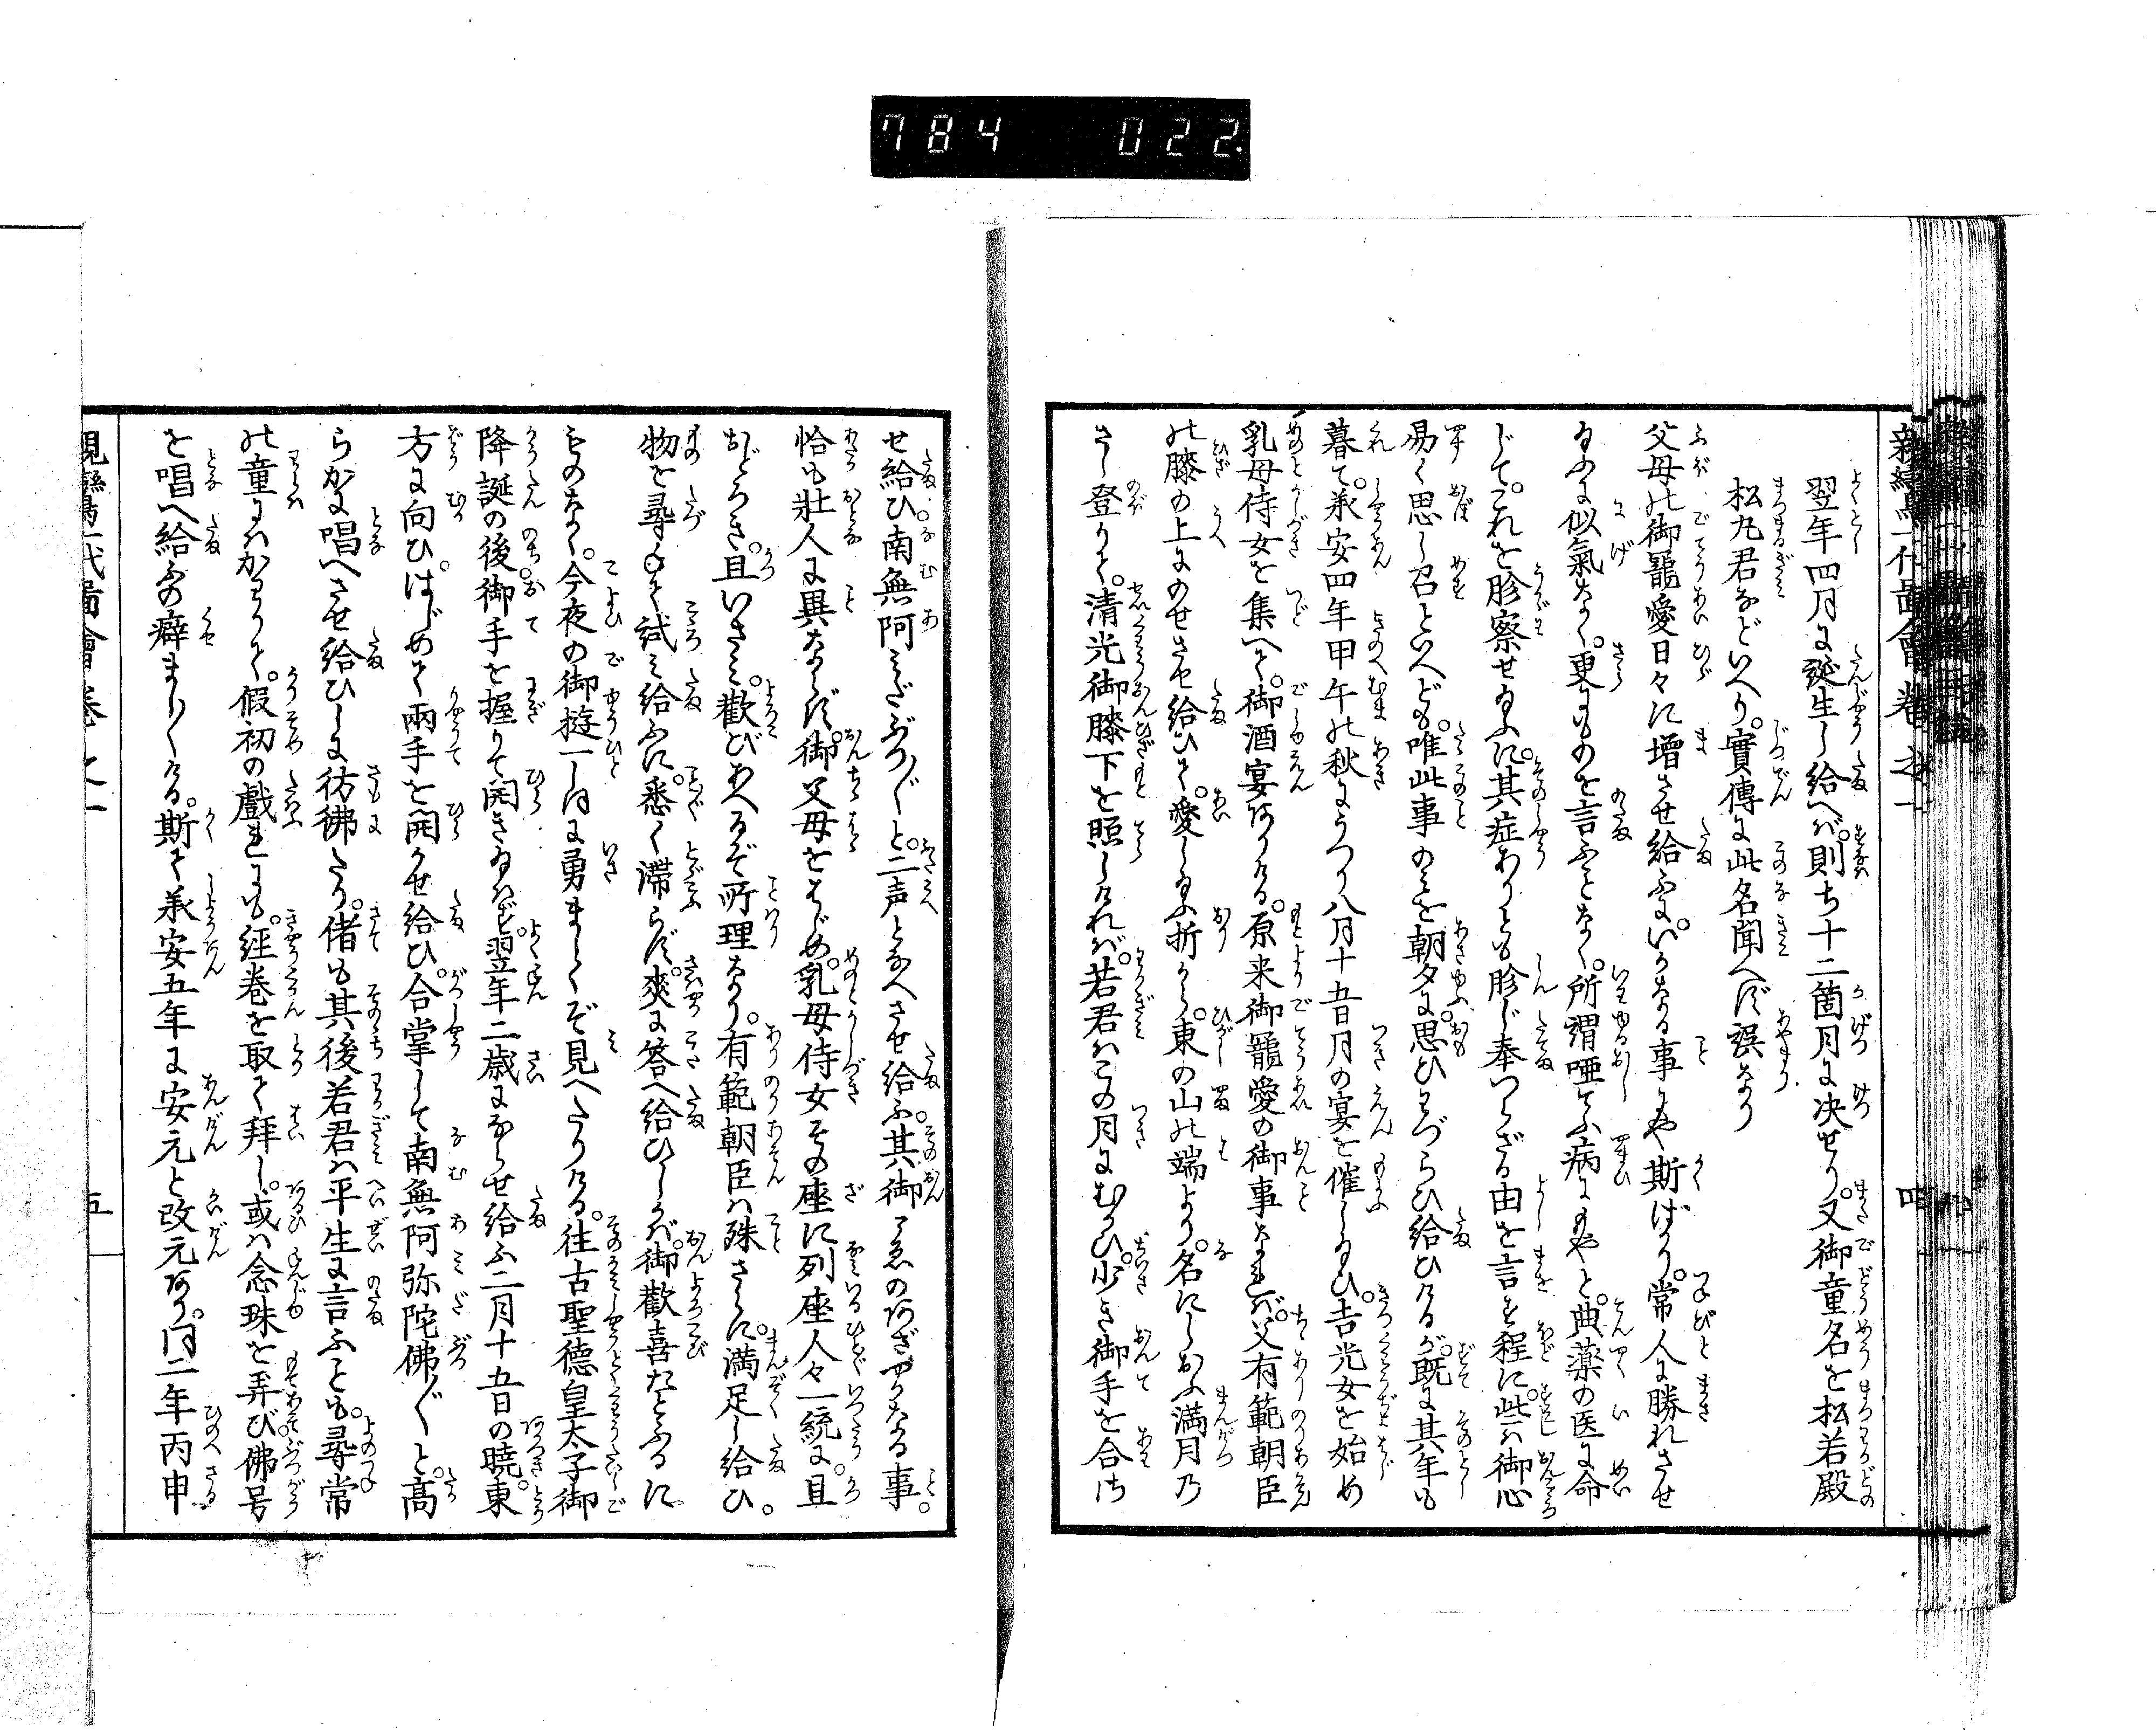 784 022.
親鸞一代啚會巻之一 四
翌年四月に誕生し給へば。則ち十二箇月に决せり。又御童名を松若殿
松丸君などいへり。實傳に此名聞へず誤なり
父母の御寵愛日々に增させ給ふに。いかなる事にや斯ばかり。常人に勝れさせ
給ふに似氣なく。更にものを言ふことなく。所謂唖てふ病にもやと。典薬の医に命
じて。これを胗察せ給ふに。其症ありとも胗じ奉つらざる由を言す程に。些は御心
易く思し召といへども。唯此事のみを朝夕に。思ひわづらひ給ひけるが。既に其年も
暮て。承安四年甲午の秋にうつり八月十五日月の宴を催し給ひ。吉光女を始め
乳母侍女を集へて。御酒宴ありける。原来御寵愛の御事なれば。父有範朝臣
の膝の上にのせさせ給ひて。愛し給ふ折から。東の山の端より。名にしおふ満月の
さし登りて。清光御膝下を照しければ。若君はこの月にむかひ。少さき御手を合は
せ給ひ。南無阿みだぶつ〳〵と。二声となへさせ給ふ。其御こゑのあざやかなる事。
恰も壯人に異ならず。御父母をはじめ。乳母侍女その座に列座人々一統に。且
おどろき。且いさみ。歡びあへるぞ所理なり。有範朝臣は殊さらに。満足し給ひ。
物を尋ねて試み給ふに。悉く滞らず。爽に答へ給ひしかば。御歡喜たとふるに
ものなく。今夜の御遊一しほに勇ましくぞ見へたりける。往古聖徳皇太子御
降誕の後。御手を握りて開き給はず。翌年二歳にならせ給ふ二月十五日の曉。東
方に向ひ。はじめて兩手を開かせ給ひ。合掌して南無阿弥陀佛〳〵と。高
らかに唱へさせ給ひしに彷彿たり。偖も其後若君は平生に言ふことも。尋常
の童にはかはりて。假初の戲れにも。経巻を取て拜し。或は念珠を弄び。佛号
を唱へ給ふの癖まし〳〵ける。斯て承安五年に安元と改元あり。同二年丙申
親鸞一代啚會巻之一 五